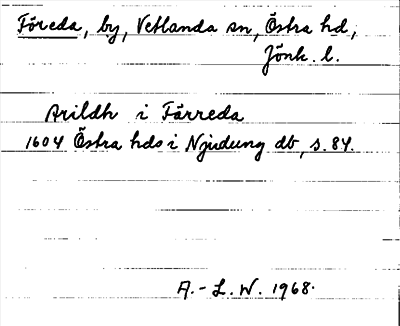 Föreda, by, Vetlanda sn, Östra hd,
Jönk. l.
Arildh i Färreda
1604 Östra hds i Njudung db, s. 84.
A.-L. W. 1968.